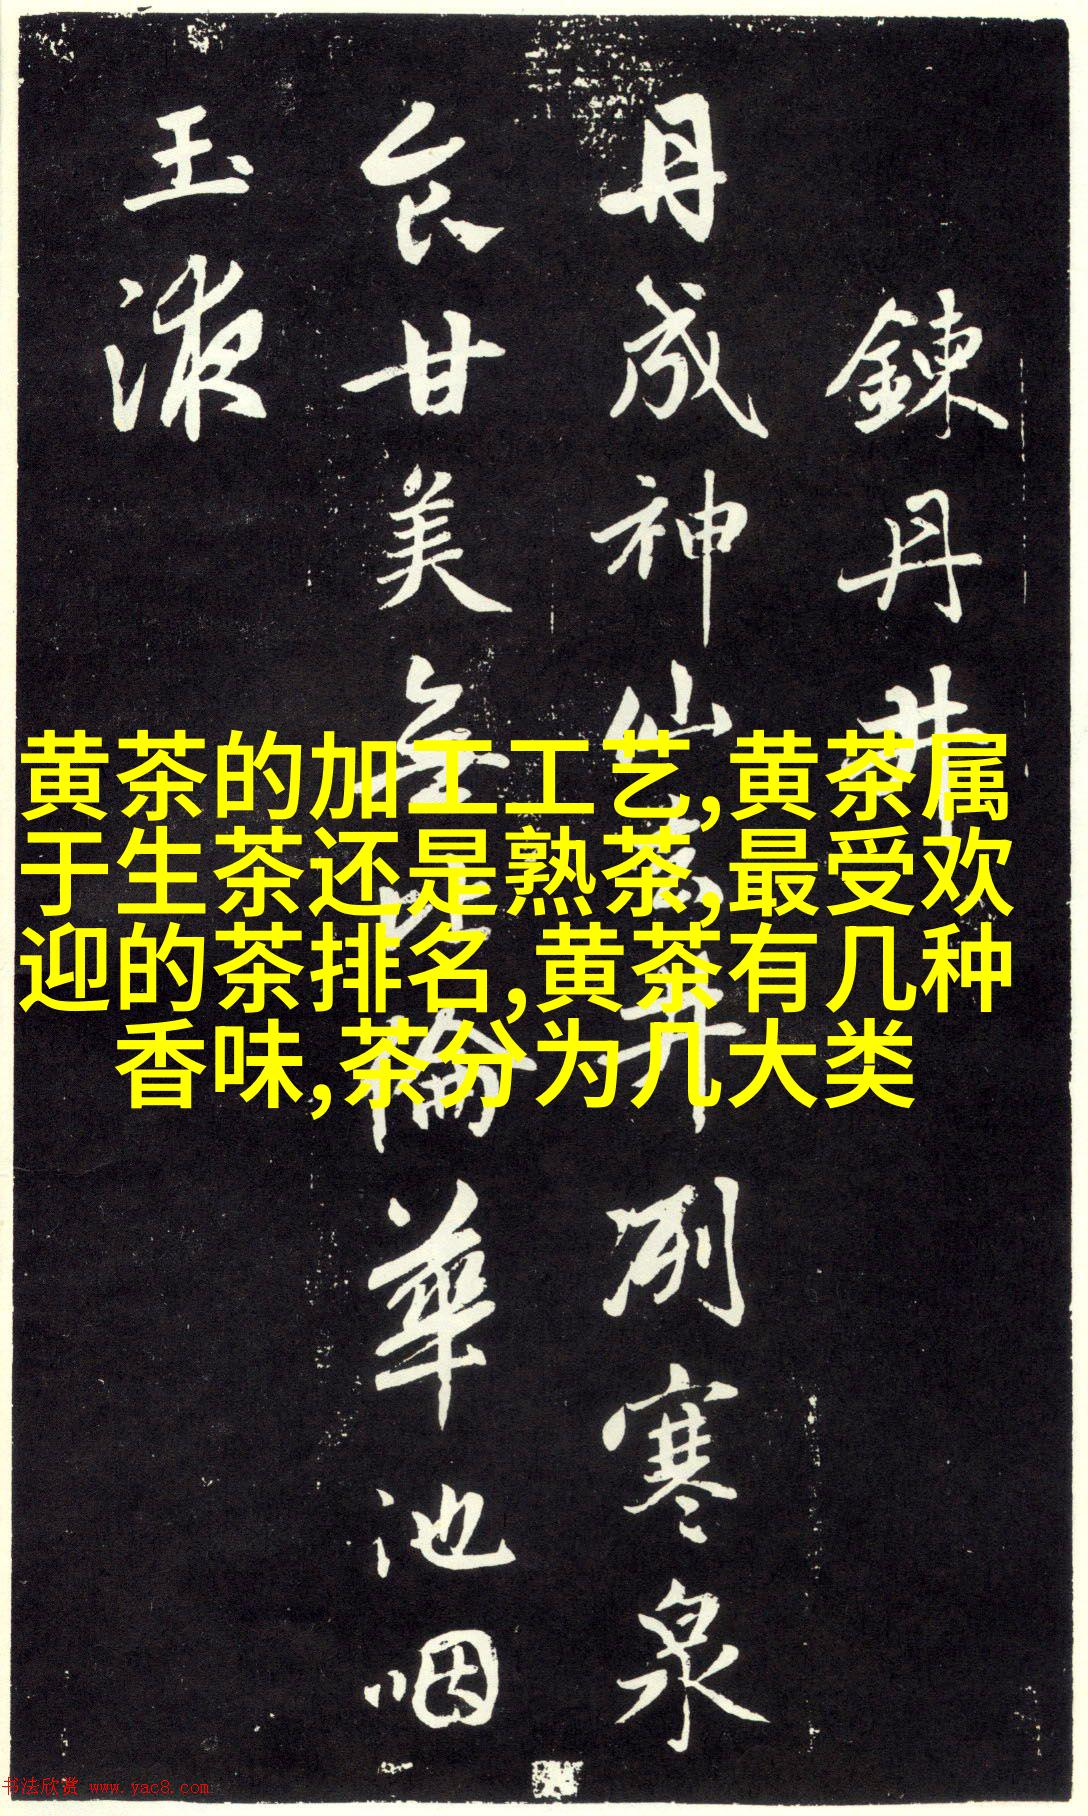 鍊丹井
丹成神仙去井冽寒泉
食甘美無比倫華池咽
玉液
黄茶的加工工艺,黄茶属
于生茶还是熟茶,最受欢
迎的茶排名,黄茶有几种
香味,茶分为几大类
书法欣赏 www.yac8.com